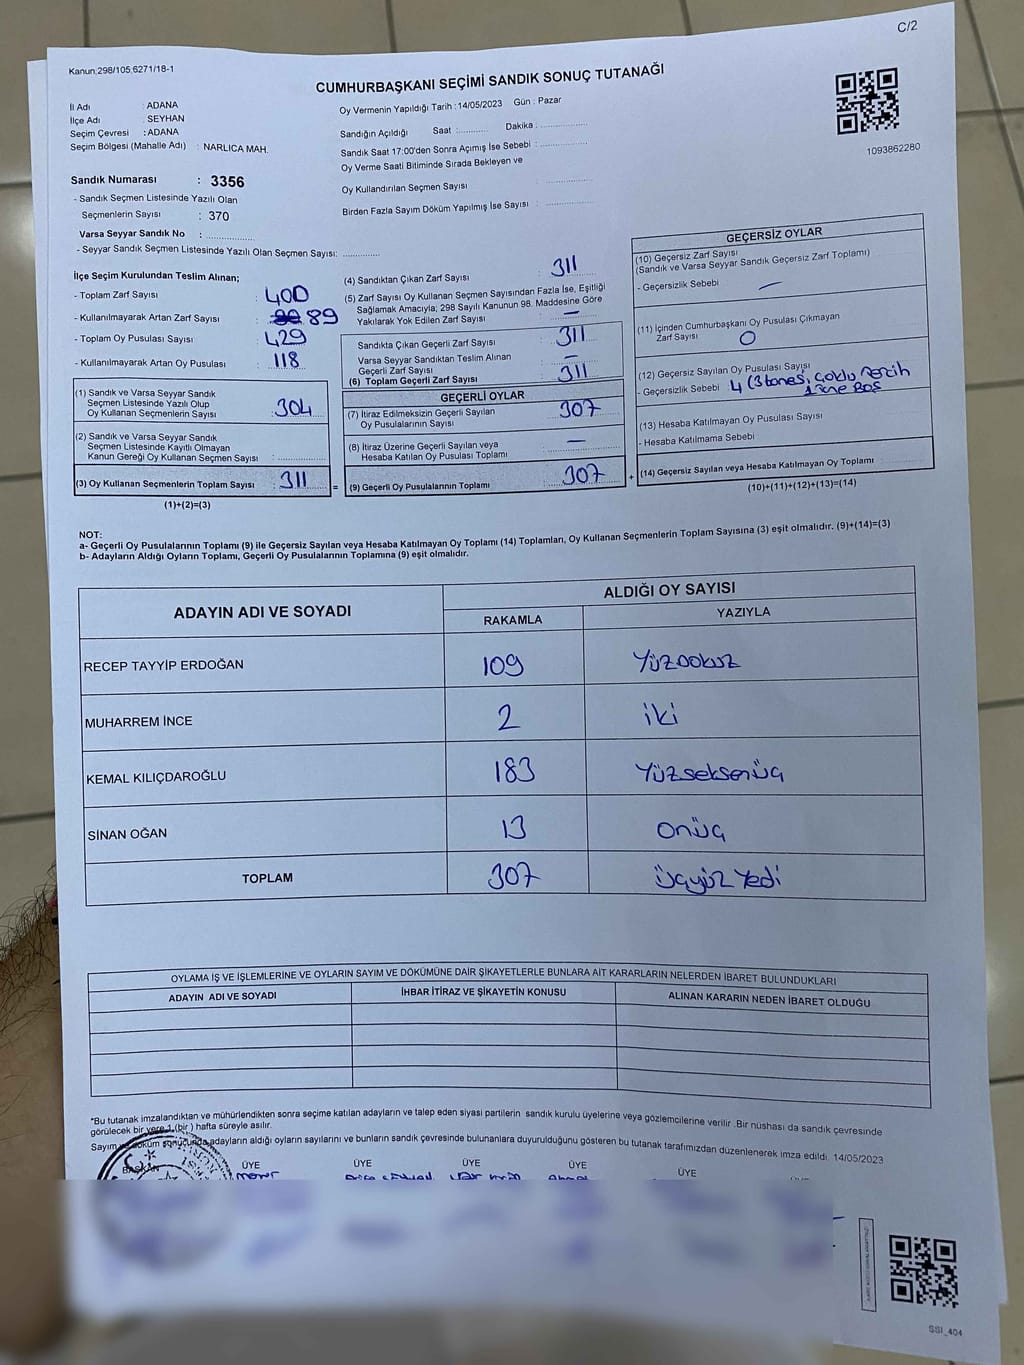 C/2
Kanun:298/105,6271/18-1
CUMHURBAŞKANI SEÇİMİ SANDIK SONUÇ TUTANAĞI
İl Adı : ADANA
İlçe Adı : SEYHAN
Seçim Çevresi : ADANA
Seçim Bölgesi (Mahalle Adı) : NARLICA MAH.
Oy Vermenin Yapıldığı Tarih :14/05/2023 Gün : Pazar
Sandığın Açıldığı Saat :.......... Dakika :....................
Sandık Saat 17:00'den Sonra Açımış İse Sebebi : ....................
Oy Verme Saati Bitiminde Sırada Bekleyen ve
Oy Kullandırılan Seçmen Sayısı : ....................
Birden Fazla Sayım Döküm Yapılmış İse Sayısı : ....................
1093862280
Sandık Numarası : 3356
- Sandık Seçmen Listesinde Yazılı Olan
Seçmenlerin Sayısı : 370
Varsa Seyyar Sandık No : ....................
- Seyyar Sandık Seçmen Listesinde Yazılı Olan Seçmen Sayısı: ...............
İlçe Seçim Kurulundan Teslim Alınan;
- Toplam Zarf Sayısı : 400
- Kullanılmayarak Artan Zarf Sayısı : 89
- Toplam Oy Pusulası Sayısı : 429
- Kullanılmayarak Artan Oy Pusulası : 118
(1) Sandık ve Varsa Seyyar Sandık
Seçmen Listesinde Yazılı Olup
Oy Kullanan Seçmenlerin Sayısı : 304
(2) Sandık ve Varsa Seyyar Sandık
Seçmen Listesinde Kayıtlı Olmayan
Kanun Gereği Oy Kullanan Seçmen Sayısı : ...............
(3) Oy Kullanan Seçmenlerin Toplam Sayısı : 311
(1)+(2)=(3)
=
(4) Sandıktan Çıkan Zarf Sayısı : 311
(5) Zarf Sayısı Oy Kullanan Seçmen Sayısından Fazla İse, Eşitliği
Sağlamak Amacıyla; 298 Sayılı Kanunun 98. Maddesine Göre
Yakılarak Yok Edilen Zarf Sayısı : —
Sandıkta Çıkan Geçerli Zarf Sayısı : 311
Varsa Seyyar Sandıktan Teslim Alınan
Geçerli Zarf Sayısı : —
(6) Toplam Geçerli Zarf Sayısı : 311
GEÇERLİ OYLAR
(7) İtiraz Edilmeksizin Geçerli Sayılan
Oy Pusulalarının Sayısı : 307
(8) İtiraz Üzerine Geçerli Sayılan veya
Hesaba Katılan Oy Pusulası Toplamı : —
(9) Geçerli Oy Pusulalarının Toplamı : 307
+
GEÇERSİZ OYLAR
(10) Geçersiz Zarf Sayısı
(Sandık ve Varsa Seyyar Sandık Geçersiz Zarf Toplamı)
- Geçersizlik Sebebi —
(11) İçinden Cumhurbaşkanı Oy Pusulası Çıkmayan
Zarf Sayısı 0
(12) Geçersiz Sayılan Oy Pusulası Sayısı
- Geçersizlik Sebebi 4 (3 tanesi çoklu tercih
1 tane Boş
(13) Hesaba Katılmayan Oy Pusulası Sayısı
- Hesaba Katılmama Sebebi
(14) Geçersiz Sayılan veya Hesaba Katılmayan Oy Toplamı
(10)+(11)+(12)+(13)=(14)
NOT:
a- Geçerli Oy Pusulalarının Toplamı (9) ile Geçersiz Sayılan veya Hesaba Katılmayan Oy Toplamı (14) Toplamları, Oy Kullanan Seçmenlerin Toplam Sayısına (3) eşit olmalıdır. (9)+(14)=(3)
b- Adayların Aldığı Oyların Toplamı, Geçerli Oy Pusulalarının Toplamına (9) eşit olmalıdır.
ADAYIN ADI VE SOYADI
ALDIĞI OY SAYISI
RAKAMLA YAZIYLA
RECEP TAYYİP ERDOĞAN 109 Yüzdokuz
MUHARREM İNCE 2 iki
KEMAL KILIÇDAROĞLU 183 Yüzseksenüç
SİNAN OĞAN 13 onüç
TOPLAM 307 Üçyüz Yedi
OYLAMA İŞ VE İŞLEMLERİNE VE OYLARIN SAYIM VE DÖKÜMÜNE DAİR ŞİKAYETLERLE BUNLARA AİT KARARLARIN NELERDEN İBARET BULUNDUKLARI
ADAYIN ADI VE SOYADI İHBAR İTİRAZ VE ŞİKAYETİN KONUSU ALINAN KARARIN NEDEN İBARET OLDUĞU
*Bu tutanak imzalandıktan ve mühürlendikten sonra seçime katılan adayların ve talep eden siyasi partilerin sandık kurulu üyelerine veya gözlemcilerine verilir .Bir nüshası da sandık çevresinde
görülecek bir yere 1 (bir ) hafta süreyle asılır.
Sayım ve döküm sonucunda adayların aldığı oyların sayılarını ve bunların sandık çevresinde bulunanlara duyurulduğunu gösteren bu tutanak tarafımızdan düzenlenerek imza edildi. 14/05/2023
BAŞKAN ÜYE ÜYE ÜYE ÜYE ÜYE
SSI_404